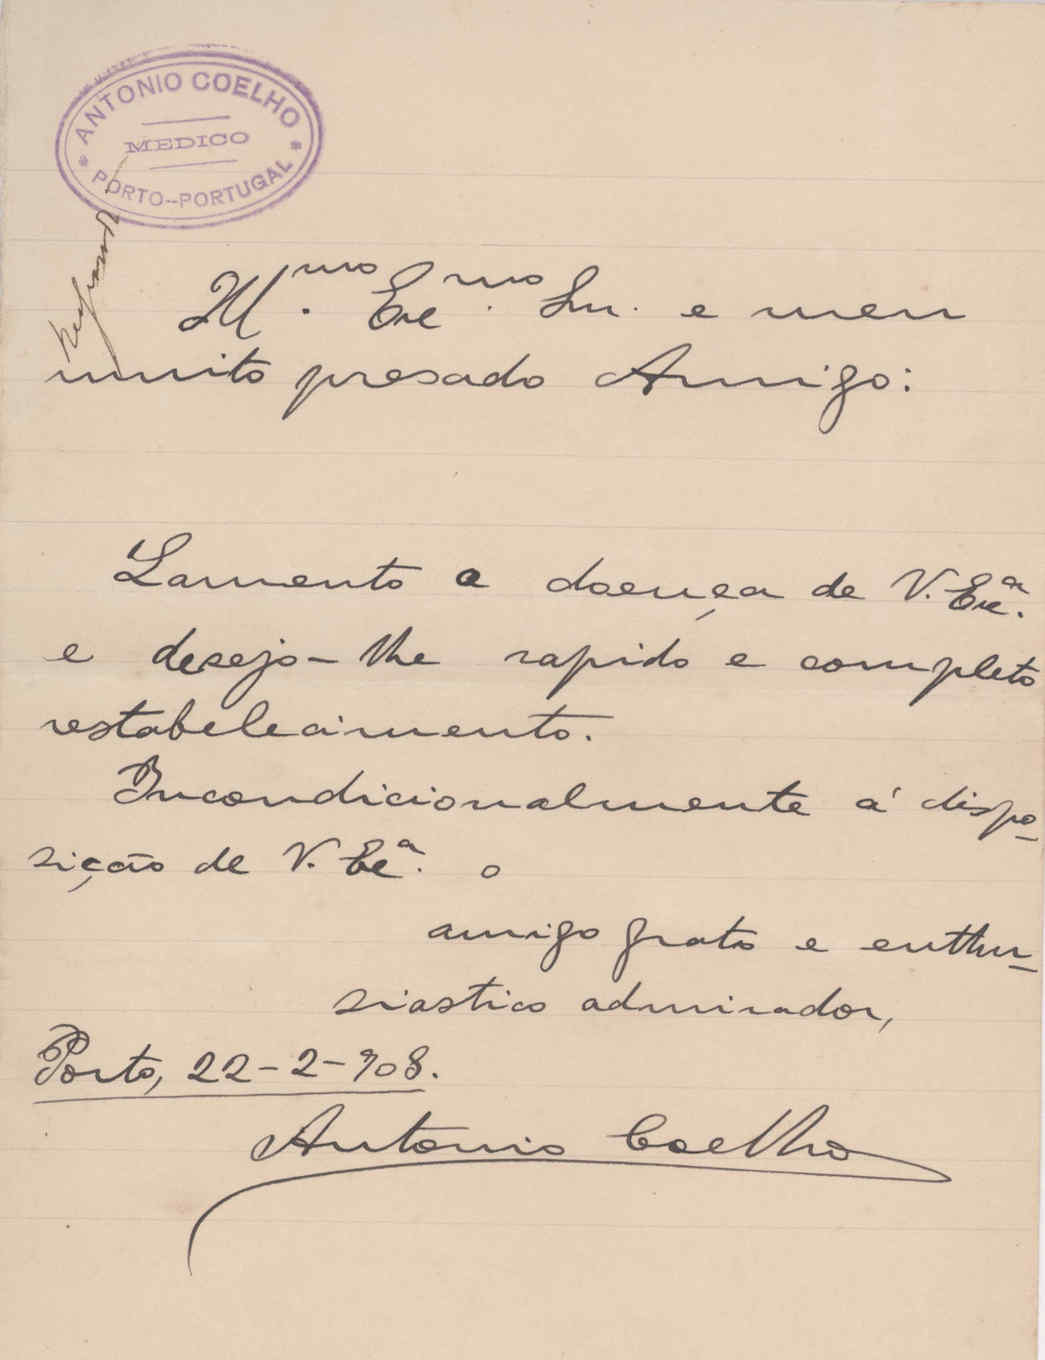 ANTONIO COELHO
MEDICO
PORTO--PORTUGAL
Ill.mo Exc.mo Snr. e meu
muito presado Amigo:
Lamento a doença de V. Exc.a
e desejo-lhe rapido e completo
restabelecimento.
Incondicionalmente á dispo-
sição de V. Exc.a o
amigo grato e enthu-
siastico admirador,
Porto, 22-2-908.
Antonio Coelho